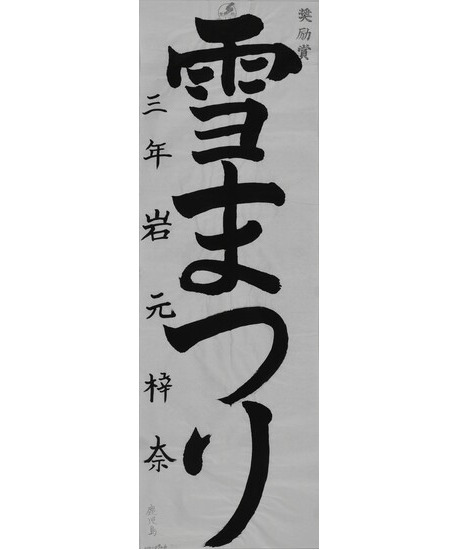 奨励賞
雪まつり
三年岩元梓奈
鹿児島